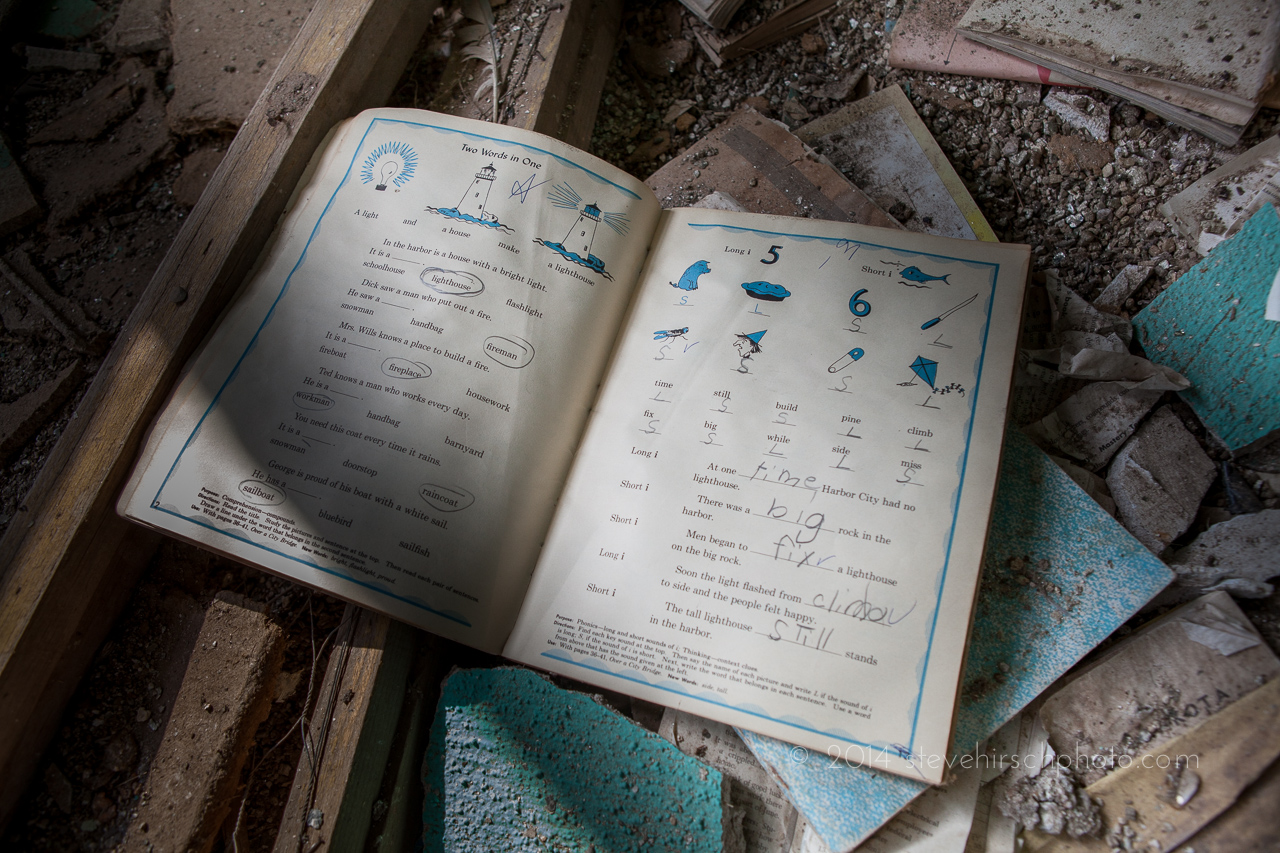 Two Words in One
A light and a house make a lighthouse
In the harbor is a house with a bright light.
It is a ____.
schoolhouse lighthouse flashlight
Dick saw a man who put out a fire.
He saw a ____.
snowman handbag fireman
Mrs. Wills knows a place to build a fire.
It is a ____.
fireboat fireplace housework
Ted knows a man who works every day.
He is a ____.
workman handbag barnyard
You need this coat every time it rains.
It is a ____.
snowman doorstop raincoat
George is proud of his boat with a white sail.
He has a ____.
sailboat bluebird sailfish
Purpose: Comprehension—compounds.
Directions: Read the title. Study the pictures and sentence at the top. Then read each pair of sentences.
Draw a line under the word that belongs in the second sentence.
Use: With pages 36-41, Over a City Bridge. New Words: bright, flashlight, proud.
Long i 5 Short i
S L 6 S L
S S S L
time still build pine climb
L S S L L
fix big while side miss
S S L L S
Long i At one time Harbor City had no
lighthouse.
Short i There was a big rock in the
harbor.
Short i Men began to fix a lighthouse
on the big rock.
Long i Soon the light flashed from
to side and the people felt happy.
Short i The tall lighthouse still stands
in the harbor.
Purpose: Phonics—long and short sounds of i; Thinking—context clues.
Directions: Find each key sound at the top. Then say the name of each picture and write L if the sound of i
is long; S, if the sound of i is short. Next, write the word that belongs in each sentence. Use a word
from above that has the sound given at the left.
Use: With pages 36-41, Over a City Bridge. New Words: side, tall.
© 2014 stevehirschphoto.com